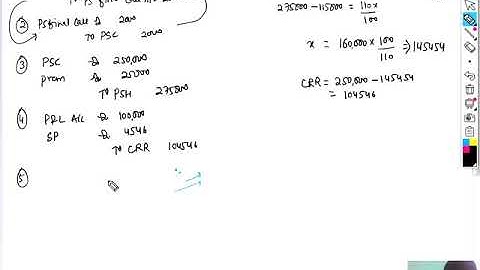 ② PSfinal Call Dr 2000
To PSC 2000
③ PSC Dr 250,000
Prem Dr 25000
To PSH 275000
④ P&L A/c Dr 100,000
SP Dr 4546
To CRR 104546
⑤
275000 - 115000 = 110x
100
x = 160,000 x 100 ⇒ 145454
110
CRR = 250,000 - 145454
= 104546